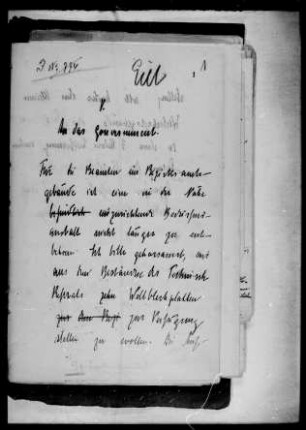 J. Nr. 775
Eilt
1
An das Gouvernement.
Für die Beamten im Bezirksamts-
gebäude ist eine in der Nähe
befindlich einzurichtende Bedürfnis-
anstalt nicht länger zu ent-
behren. Ich bitte gehorsamst, mir
aus den Beständen des Technisch.
Referats zehn Wellblechplatten
zur Verfügung
stellen zu wollen. Die